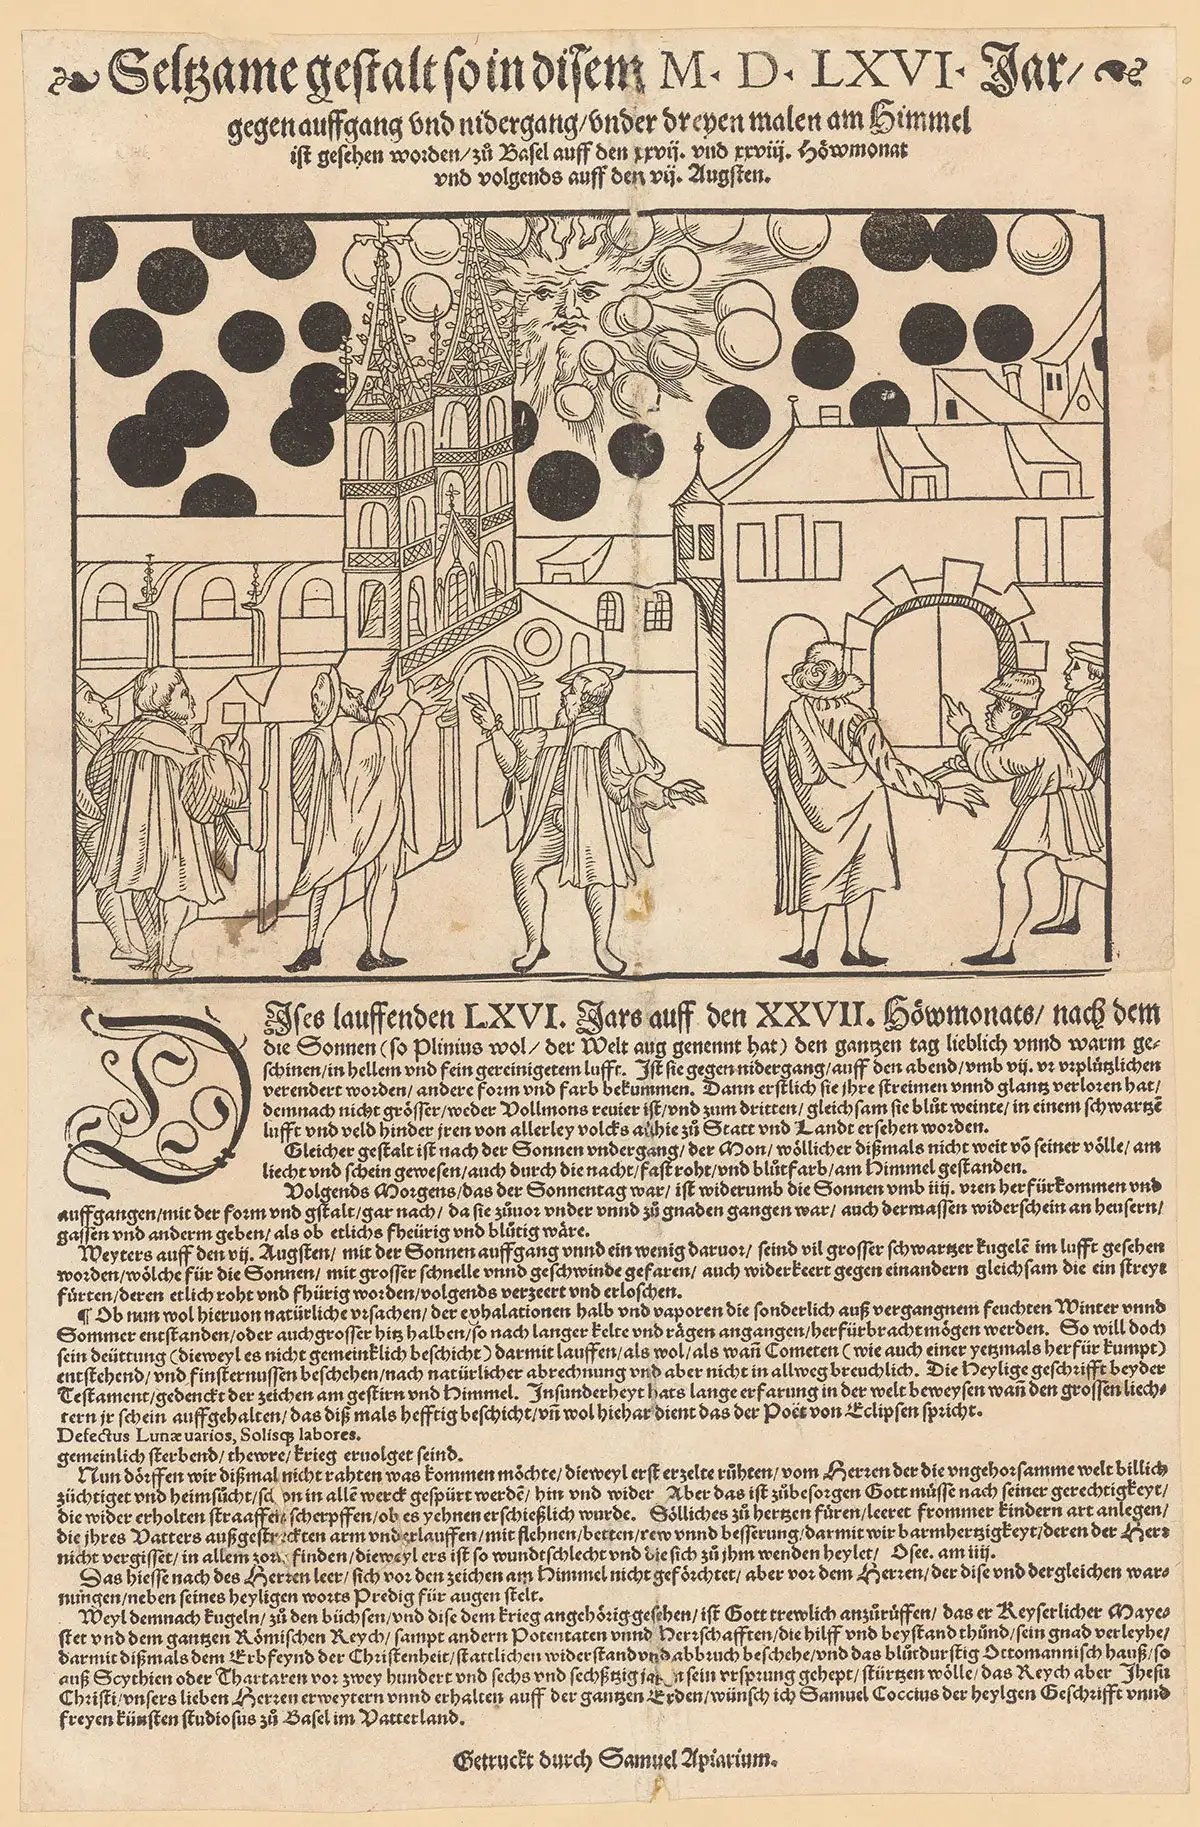 Seltzame gestalt so in disem M. D. LXVI. Jar/
gegen auffgang vnd nidergang/vnder dreyen malen am Himmel
ist gesehen worden/zů Basel auff den xxvij. vnd xxviij. Höwmonat
vnd volgends auff den vij. Augsten.
DJses lauffenden LXVI. Jars auff den XXVII. Höwmonats/ nach dem
die Sonnen (so Plinius wol/ der Welt aug genennt hat) den gantzen tag lieblich vnnd warm ge-
schinen/in hellem vnd fein gereinigetem lufft. Jst sie gegen nidergang/auff den abend/vmb vij. vr vrplützlichen
verendert worden/ andere form vnd farb bekummen. Dann erstlich sie jhre streimen vnnd glantz verloren hat/
demnach nicht grösser/weder Vollmons revier ist/vnd zum dritten/gleichsam sie blůt weinte/in einem schwartzē
lufft vnd veld hinder jren von allerley volcks alhie zů Statt vnd Landt ersehen worden.
Gleicher gestalt ist nach der Sonnen vndergang/der Mon/wöllicher dißmals nicht weit vō seiner völle/ am
liecht vnd schein gewesen/auch durch die nacht/fast roht/vnd blůtfarb/am Himmel gestanden.
Volgends Morgens/das der Sonnentag war/ ist widerumb die Sonnen vmb iiij. vren herfürkommen vnd
auffgangen/mit der form vnd gstalt/gar nach/ da sie zůuor vnder vnnd zů gnaden gangen war/ auch dermassen widerschein an heusern/
gassen vnd anderm geben/ als ob etlichs fheürig vnd blůtig wäre.
Weyters auff den vij. Augsten/ mit der Sonnen auffgang vnnd ein wenig daruor/ seind vil grosser schwartzer kugelē im lufft gesehen
worden/wölche für die Sonnen/ mit grosser schnelle vnnd geschwinde gefaren/ auch widerkeert gegen einandern gleichsam die ein streyt
fůrten/deren etlich roht vnd fhürig worden/volgends verzeert vnd erloschen.
¶ Ob nun wol hieruon natürliche vrsachen/ der exhalationen halb vnd vaporen die sonderlich auß vergangnem feuchten Winter vnnd
Sommer entstanden/oder auch grosser hitz halben/so nach langer kelte vnd rägen angangen/herfürbracht mögen werden. So will doch
sein deüttung (dieweyl es nicht gemeinklich beschicht) darmit lauffen/als wol/als wañ Cometen (wie auch einer yetzmals herfür kumpt)
entstehend/ vnd finsternussen beschehen/nach natürlicher abrechnung vnd aber nicht in allweg breuchlich. Die Heylige geschrifft beyder
Testament/gedenckt der zeichen am gestirn vnd Himmel. Jnsunderheyt hats lange erfarung in der welt beweysen wañ den grossen liech-
tern jr schein auffgehalten/das diß mals hefftig beschicht/vñ wol hiehar dient das der Poët von Eclipsen spricht.
Defectus Lunæ uarios, Solisq; labores.
gemeinlich sterbend/ thewre/krieg eruolget seind.
Nun dörffen wir dißmal nicht rahten was kommen möchte/dieweyl erst erzelte růhten/vom Herren der die vngehorsamme welt billich
züchtiget vnd heimsůcht/schon in allē werck gespürt werdē/ hin vnd wider Aber das ist zůbesorgen Gott müsse nach seiner gerechtigkeyt/
die wider erholten straaffen scherpffen/ob es yehnen erschießlich wurde. Sölliches zů hertzen füren/leeret frommer kindern art anlegen/
die jhres Vatters außgestreckten arm vnderlauffen/mit flehnen/betten/rew vnnd besserung/darmit wir barmhertzigkeyt/deren der Herr
nicht vergisset/in allem zorn finden/dieweyl ers ist so wundtschlecht vnd die sich zů jhm wenden heylet/ Osee. am iiij.
Das hiesse nach des Herren leer/ sich vor den zeichen am Himmel nicht geförchtet/ aber vor dem Herren/der dise vnd dergleichen war-
nungen/neben seines heyligen worts Predig für augen stelt.
Weyl demnach kugeln/ zů den büchsen/vnd dise dem krieg angehörig gesehen/ ist Gott trewlich anzůrüffen/ das er Keyserlicher Maye-
stet vnd dem gantzen Römischen Reych/ sampt andern Potentaten vnnd Herrschafften/die hilff vnd beystand thůnd/sein gnad verleyhe/
darmit dißmals dem Erbfeynd der Christenheit/stattlichen widerstand vnd abbruch beschehe/vnd das blůtdurstig Ottomannisch hauß/so
auß Scythien oder Thartaren vor zwey hundert vnd sechs vnd sechßtzig jaren sein vrsprung gehept/ stürtzen wölle/das Reych aber Jhesu
Christi/vnsers lieben Herren erweytern vnnd erhalten auff der gantzen Erden/wünsch ich Samuel Coccius der heylgen Geschrifft vnnd
freyen künsten studiosus zů Basel im Vatterland.
Getruckt durch Samuel Apiarium.